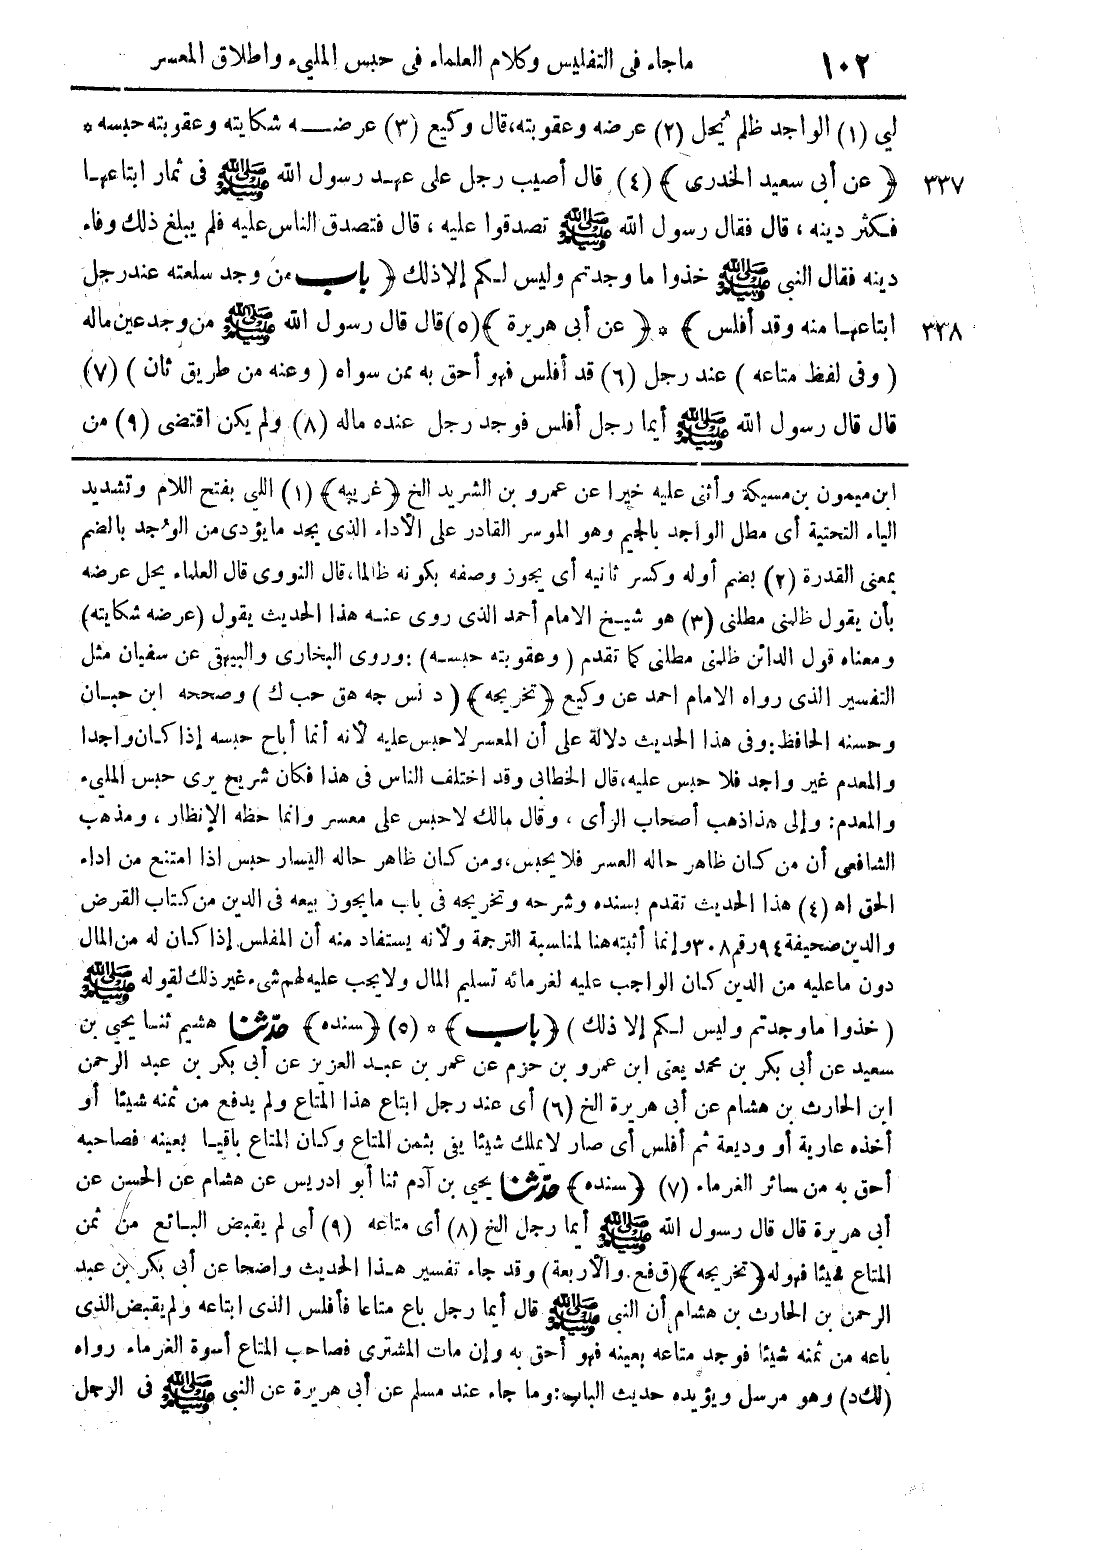 ١٠٢ ماجاء فى التفليس وكلام العلماء فى حبس الملىء واطلاق المعسر
لىي (١) الواجد ظلم يُحل (٢) عرضه وعقوبته، قال وكيع (٣) عرضه شكايته وعقوبته حبسه *
٣٣٧ ﴿ عن أبى سعيد الخدرى ﴾ (٤) قال أصيب رجل على عهد رسول الله ﷺ فى ثمار ابتاعها
فكثر دينه ، قال فقال رسول الله ﷺ تصدقوا عليه ، قال فتصدق الناس عليه فلم يبلغ ذلك وفاء
دينه فقال النبى ﷺ خذوا ما وجدتم وليس لكم إلا ذلك ﴿ باب من وجد سلعته عند رجل
٣٣٨ ابتاعها منه وقد أفلس ﴾ * ﴿ عن أبى هريرة ﴾(٥) قال قال رسول الله ﷺ من وجد عين ماله
( وفى لفظ متاعه ) عند رجل (٦) قد أفلس فهو أحق به ممن سواه ( وعنه من طريق ثان ) (٧)
قال قال رسول الله ﷺ أيما رجل أفلس فوجد رجل عنده ماله (٨) ولم يكن اقتضى (٩) من
ابن ميمون بن مسيكة وأثنى عليه خيرا عن عمرو بن الشريد الخ ﴿غريبه﴾ (١) اللي بفتح اللام وتشديد
الياء التحتية أى مطل الواجد بالجيم وهو الموسر القادر على الأداء الذى يجد ما يؤدى من الوُجد بالضم
بمعنى القدرة (٢) بضم أوله وكسر ثانيه أى يجوز وصفه بكونه ظالما، قال النووى قال العلماء يحل عرضه
بأن يقول ظلمنى مطلنى (٣) هو شيخ الامام أحمد الذى روى عنه هذا الحديث يقول (عرضه شكايته)
ومعناه قول الدائن ظلمنى مطلنى كما تقدم ( وعقوبته حبسه) : وروى البخارى والبيهقى عن سفيان مثل
التفسير الذى رواه الامام احمد عن وكيع ﴿تخريجه﴾ ( د نس جه هق حب ك ) وصححه ابن حبان
وحسنه الحافظ : وفى هذا الحديث دلالة على أن المعسر لا حبس عليه لأنه أنما أباح حبسه إذا كان واجدا
والمعدم غير واجد فلا حبس عليه، قال الخطابى وقد اختلف الناس فى هذا فكان شريح يرى حبس الملىء
والمعدم : وإلى هذا ذهب أصحاب الرأى ، وقال مالك لا حبس على معسر وانما حظه الإنظار ، ومذهب
الشافعى أن من كان ظاهر حاله العسر فلا يحبس، ومن كان ظاهر حاله اليسار حبس اذا امتنع من اداء
الحق اه (٤) هذا الحديث تقدم بسنده وشرحه وتخريجه فى باب ما يجوز بيعه فى الدين من كتاب القرض
والدين صحيفة ٩٤ رقم ٣٠٨ وإنما أثبته هنا لمناسبة الترجمة ولأنه يستفاد منه أن المفلس إذا كان له من المال
دون ما عليه من الدين كان الواجب عليه لغرمائه تسليم المال ولا يجب عليه لهم شىء غير ذلك لقوله ﷺ
( خذوا ما وجدتم وليس لكم إلا ذلك ) ﴿ باب ﴾ * (٥) ﴿سنده﴾ حدّثنا هشيم ثنا يحيى بن
سعيد عن أبى بكر بن محمد يعنى ابن عمرو بن حزم عن عمر بن عبد العزيز عن أبى بكر بن عبد الرحمن
ابن الحارث بن هشام عن أبى هريرة الخ (٦) أى عند رجل ابتاع هذا المتاع ولم يدفع من ثمنه شيئا أو
أخذه عارية أو وديعة ثم أفلس أى صار لا يملك شيئا يفى بثمن المتاع وكان المتاع باقيا بعينه فصاحبه
أحق به من سائر الغرماء (٧) ﴿سنده﴾ حدّثنا يحيى بن آدم ثنا أبو ادريس عن هشام عن الحسن عن
أبى هريرة قال قال رسول الله ﷺ أيما رجل الخ (٨) أى متاعه (٩) أى لم يقبض البائع من ثمن
المتاع شيئا فهوله ﴿تخريجه﴾ (ق فع . والأربعة) وقد جاء تفسير هذا الحديث واضحا عن أبى بكر بن عبد
الرحمن بن الحارث بن هشام أن النبى ﷺ قال أيما رجل باع متاعا فأفلس الذى ابتاعه ولم يقبض الذى
باعه من ثمنه شيئا فوجد متاعه بعينه فهو أحق به وإن مات المشترى فصاحب المتاع أسوة الغرماء رواه
(لك د) وهو مرسل ويؤيده حديث الباب : وما جاء عند مسلم عن أبى هريرة عن النبى ﷺ فى الرجل